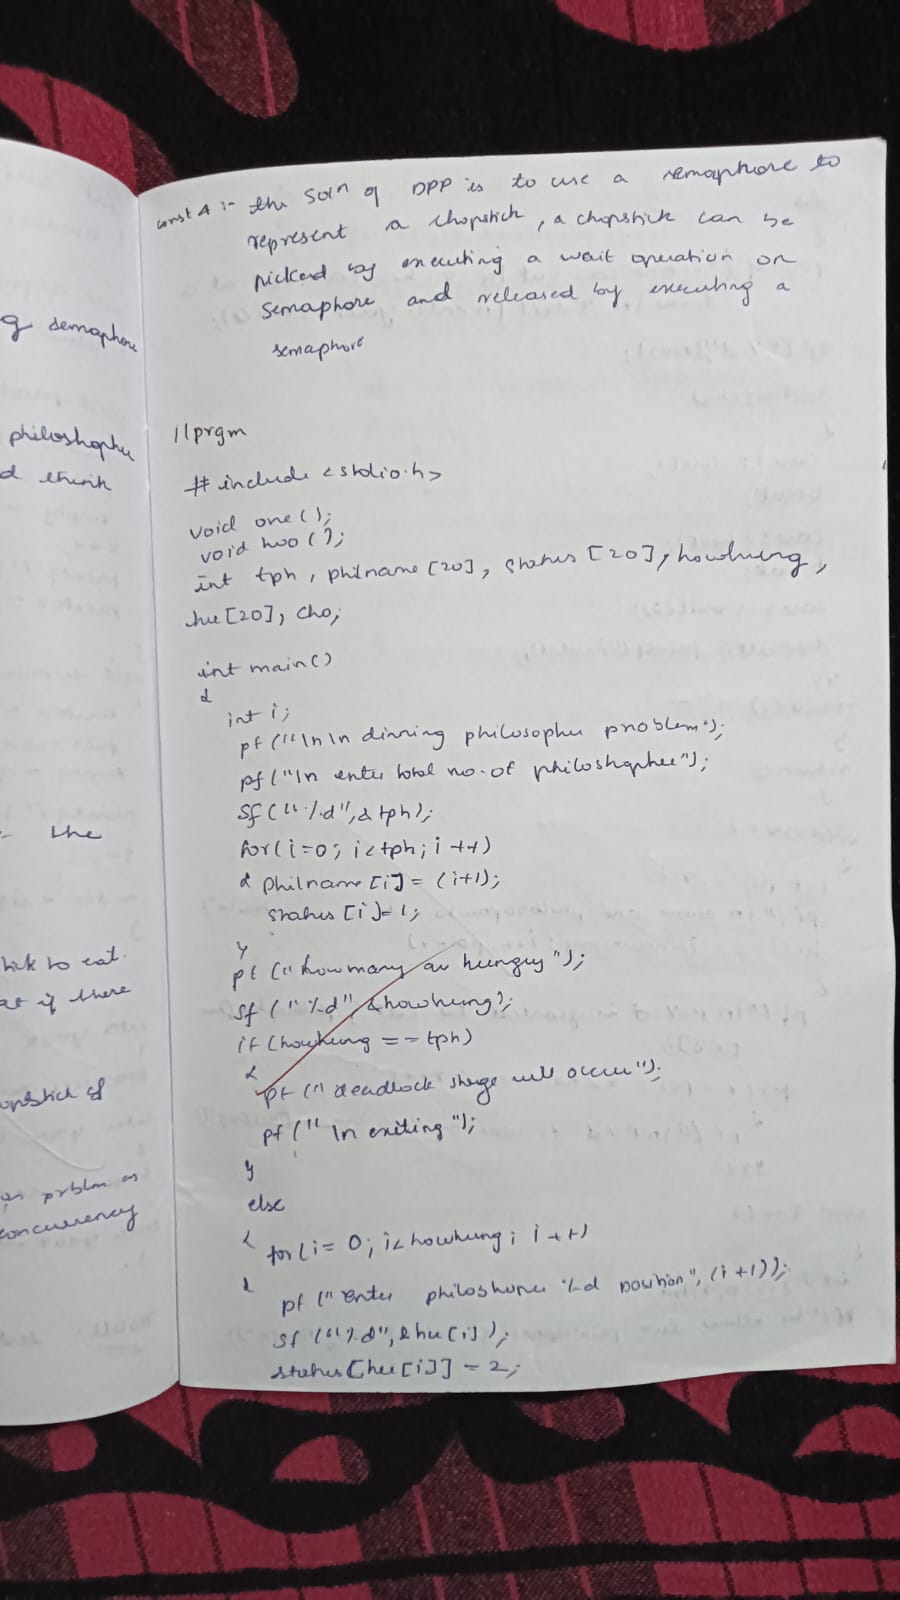 g semaphore
philoshophe
d think
the
hick to eat.
at if there
opstick of
prblm as
concurrency
const 4 :- the soln of DPP is to use a semaphore to
represent a chopstick, a chopstick can be
picked by executing a wait operation on
semaphore and released by executing a
semaphore
//prgm
# include <stdio.h>
void one();
void two();
int tph, philname[20], status[20], howhung,
hu[20], cho;
int main()
{
int i;
pf("\n\n dinning philosopher problem");
pf("\n enter total no. of philoshopher");
sf("%d",&tph);
for(i=0; i<tph; i++)
{ philname[i] = (i+1);
status[i]=1;
}
pf("how many are hungry");
sf("%d", &howhung);
if(howhung == tph)
{
pf("deadlock stage will occur");
pf("\n exiting");
}
else
{ for(i=0; i<howhung; i++)
{
pf("enter philoshoper %d position", (i+1));
sf("%d",&hu[i]);
status[hu[i]] = 2;